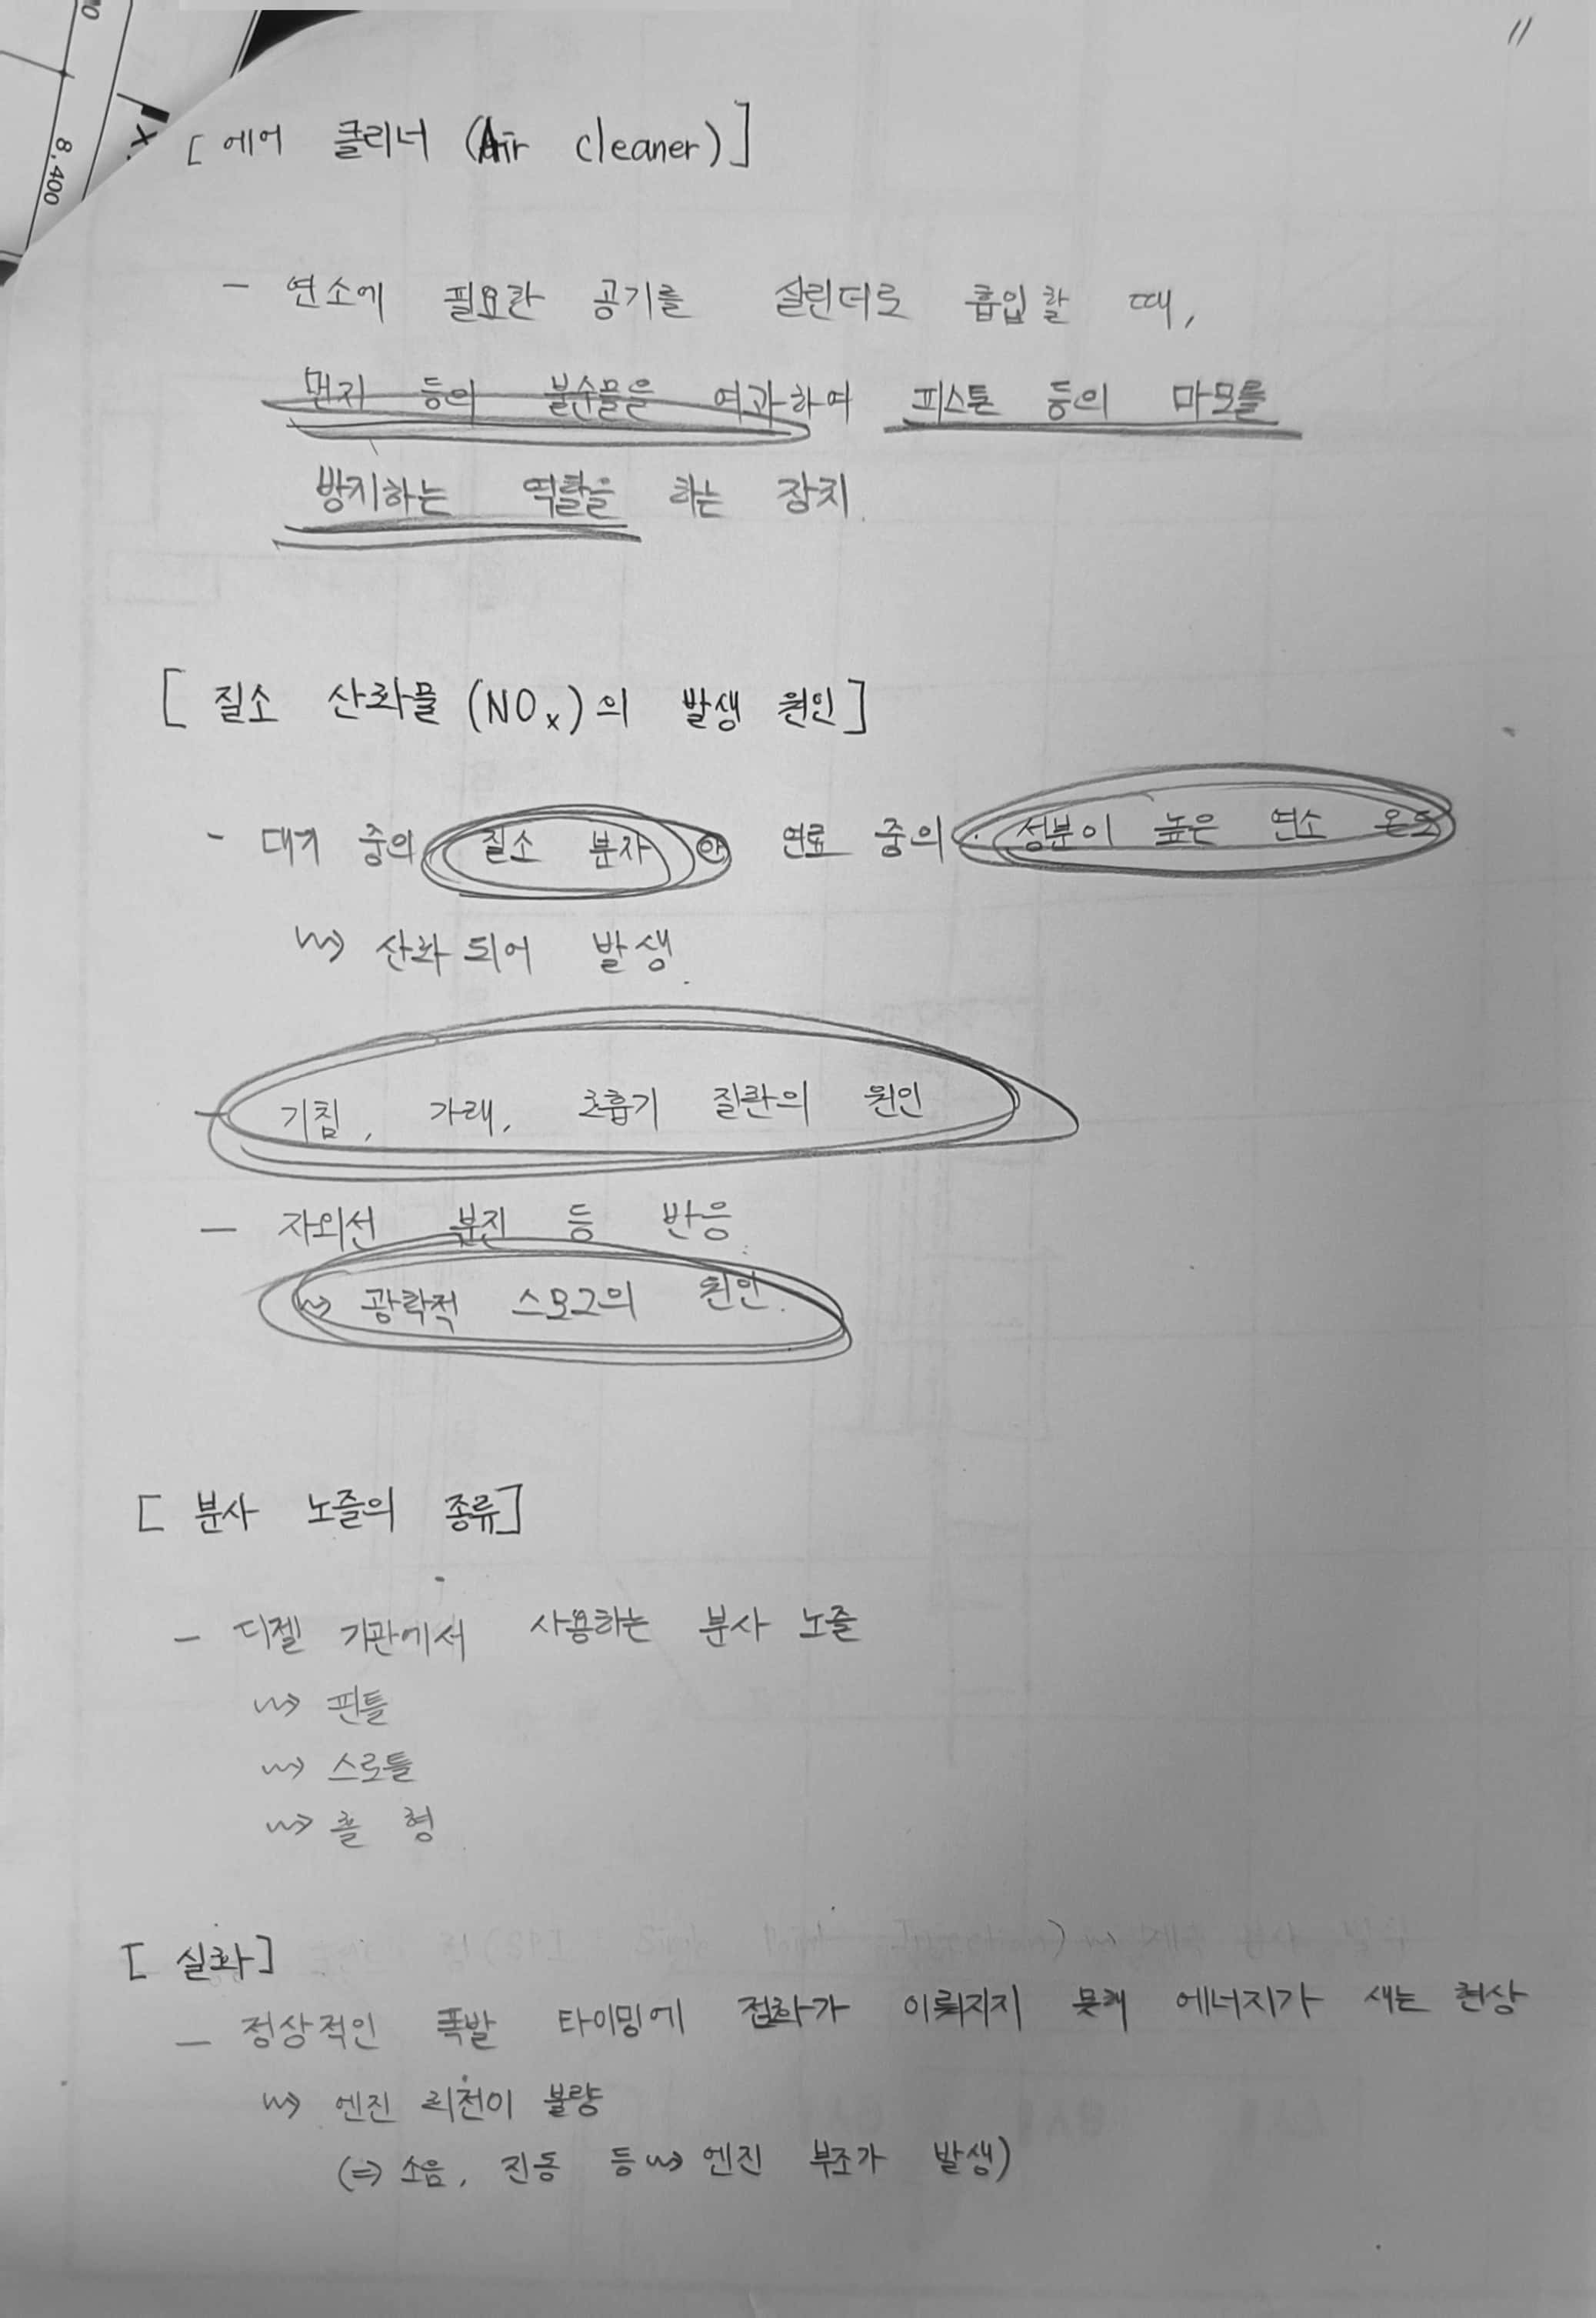 11
8,400
[에어 클리너 (Air cleaner)]
- 연소에 필요한 공기를 실린더로 흡입할 때,
먼지 등의 불순물을 여과하여 피스톤 등의 마모를
방지하는 역할을 하는 장치.
[질소 산화물 (NOx)의 발생 원인]
- 대기 중의 질소 분자와 연료 중의 성분이 높은 연소 온도
⇝ 산화되어 발생.
- 기침, 가래, 호흡기 질환의 원인
- 자외선 분진 등 반응
⇝ 광학적 스모그의 원인.
[분사 노즐의 종류]
- 디젤 기관에서 사용하는 분사 노즐
⇝ 핀틀
⇝ 스로틀
⇝ 홀 형
[실화]
- 정상적인 폭발 타이밍에 점화가 이뤄지지 못해 에너지가 새는 현상
⇝ 엔진 회전이 불량
(⇒ 소음, 진동 등 ⇝ 엔진 부조가 발생)